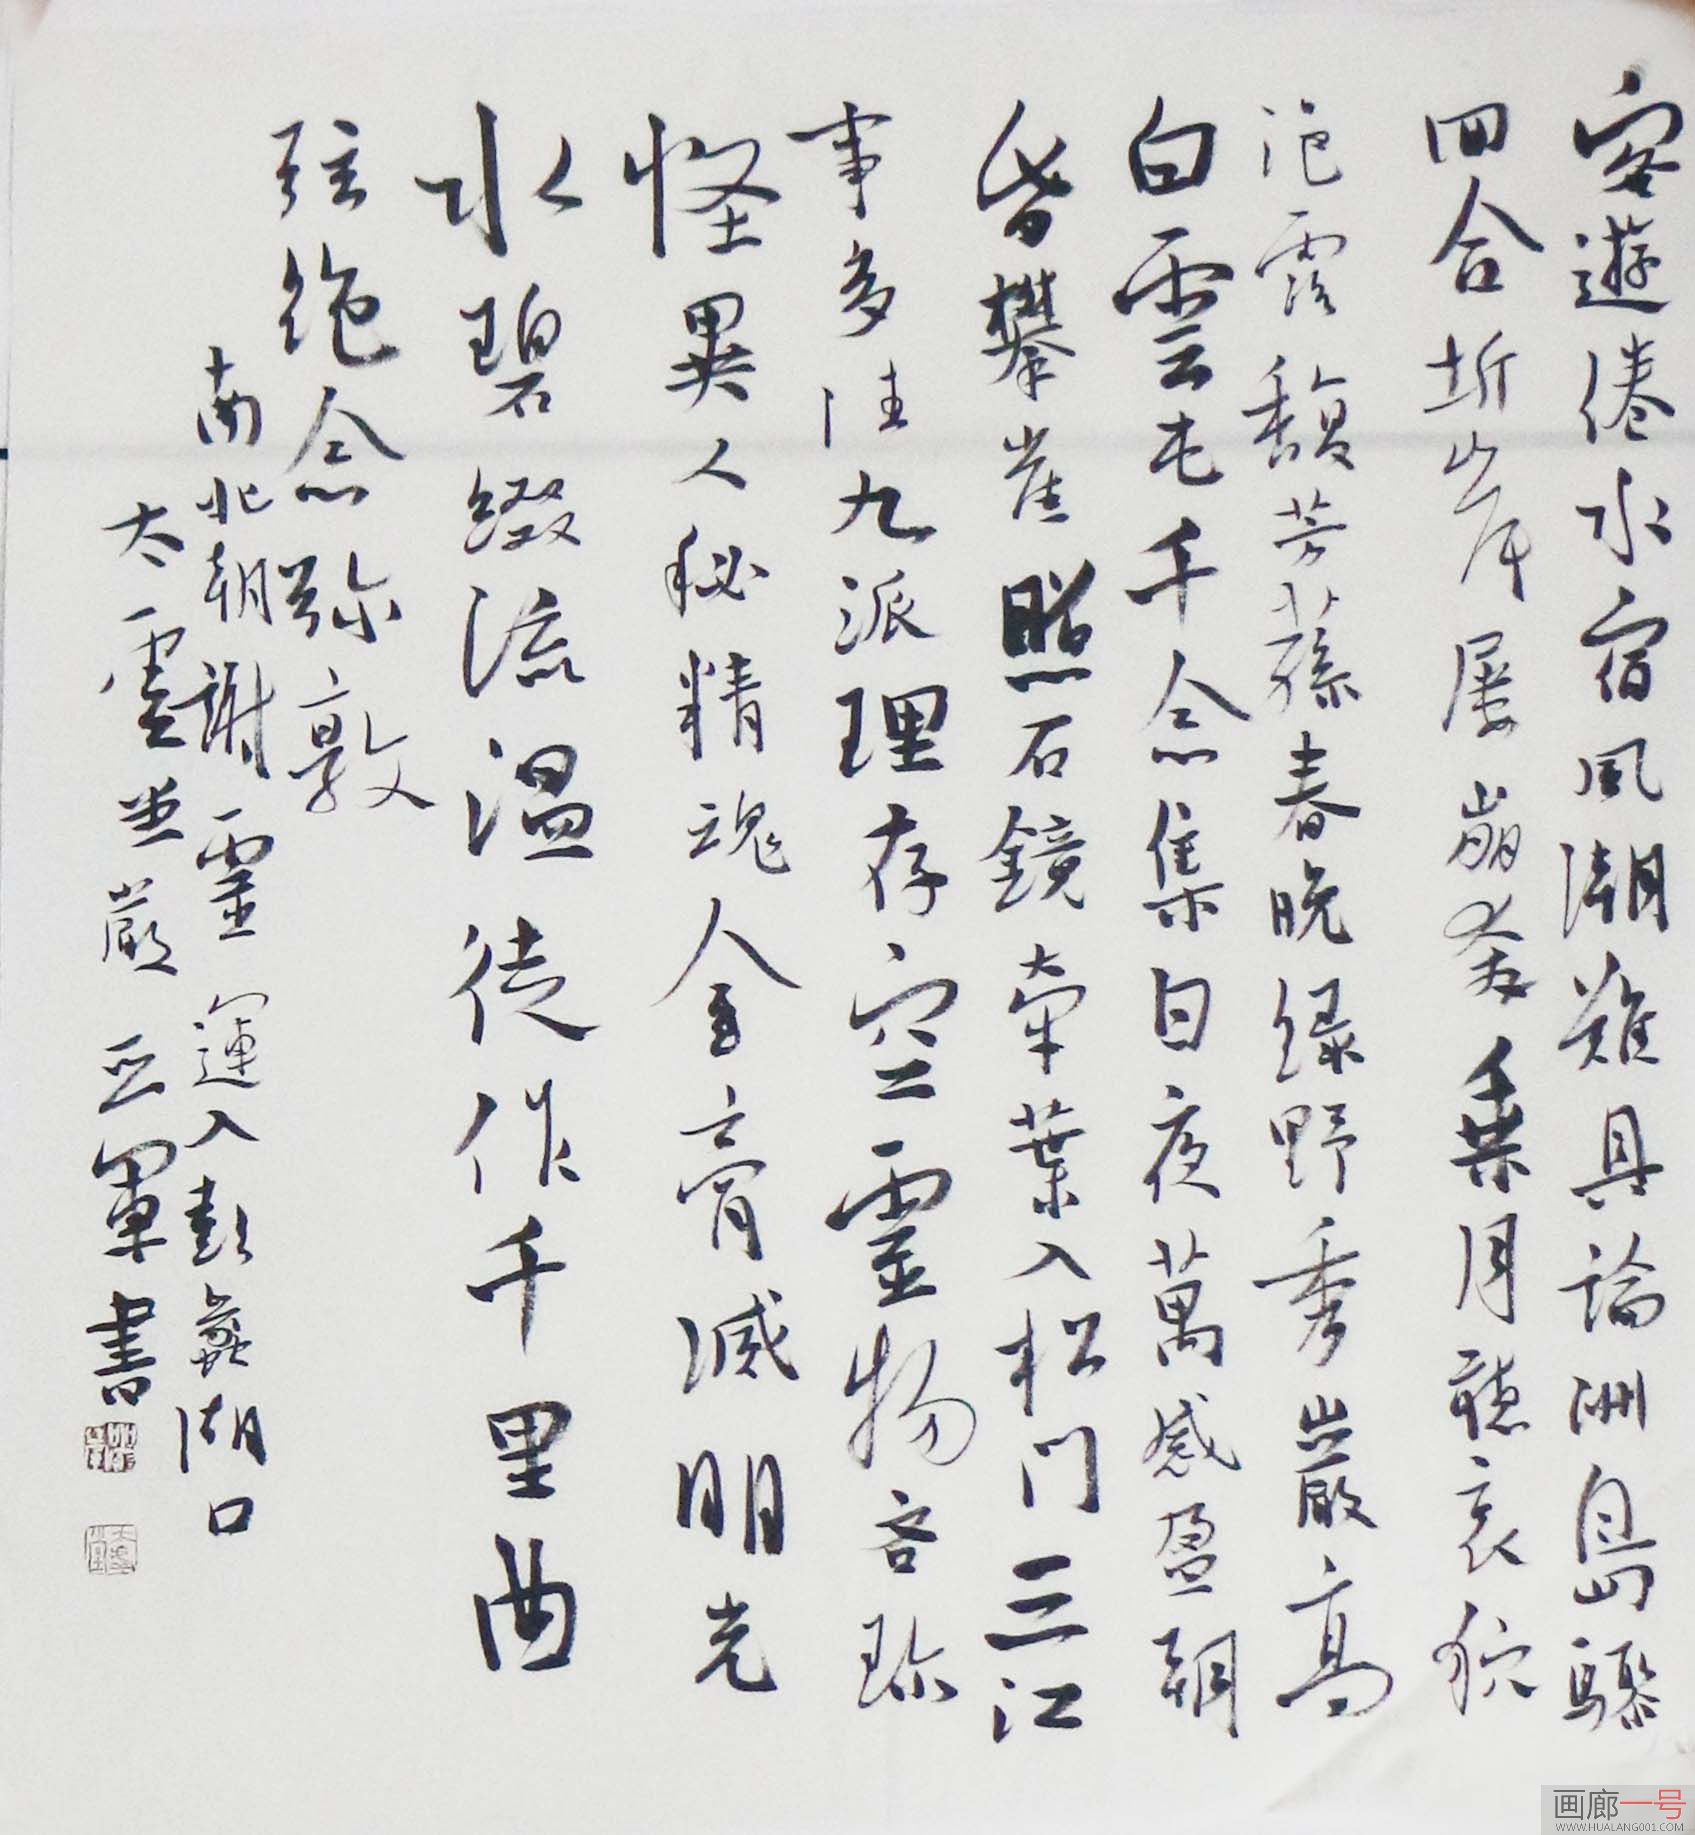 客遊倦水宿風潮難具論洲島驟
回合圻岸屢崩奔乘月聽哀狖
浥露馥芳蓀春晚緑野秀巖高
白雲屯千念集日夜萬感盈朝
昏攀崖照石鏡牽葉入松门三江
事多往九派理存空靈物吝珍
怪異人秘精魂金膏滅明光
水碧綴流温徒作千里曲
弦絶念弥敦
南北朝謝靈運入彭蠡湖口
太虚堂嚴軍書
画廊一号
WWW.HUALANG001.COM